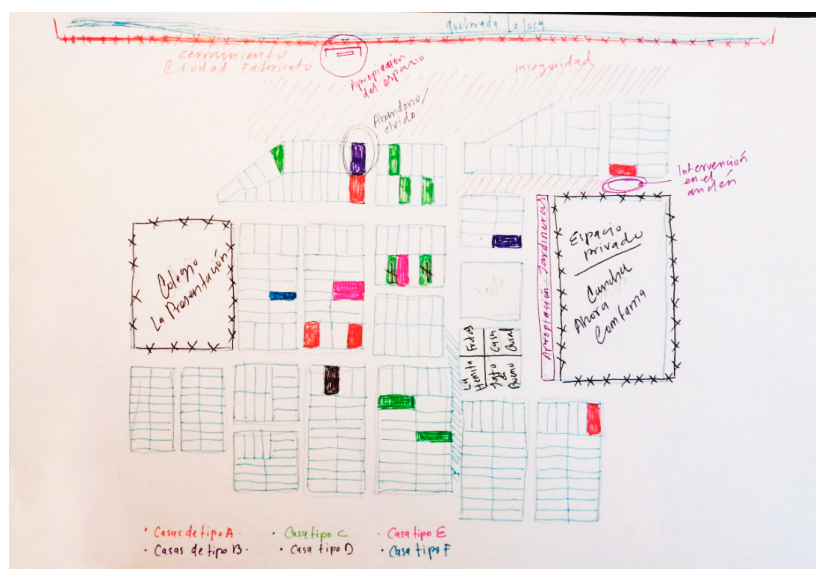 quebrada La loca
cerramiento
Ciudad Fabricato
Apropiacion
del espacio
inseguridad
Abandono/
olvido
Intervención
en el
andén
Colegio
La Presentación
Apropiación Jardineras
Espacio
privado
Cancha
Ahora
Comfama
Casa
Cural
La
• Casas de tipo A.
• Casa tipo C
• Casa tipo E
• Casas de tipo B.
• Casa tipo D
• Casa tipo F